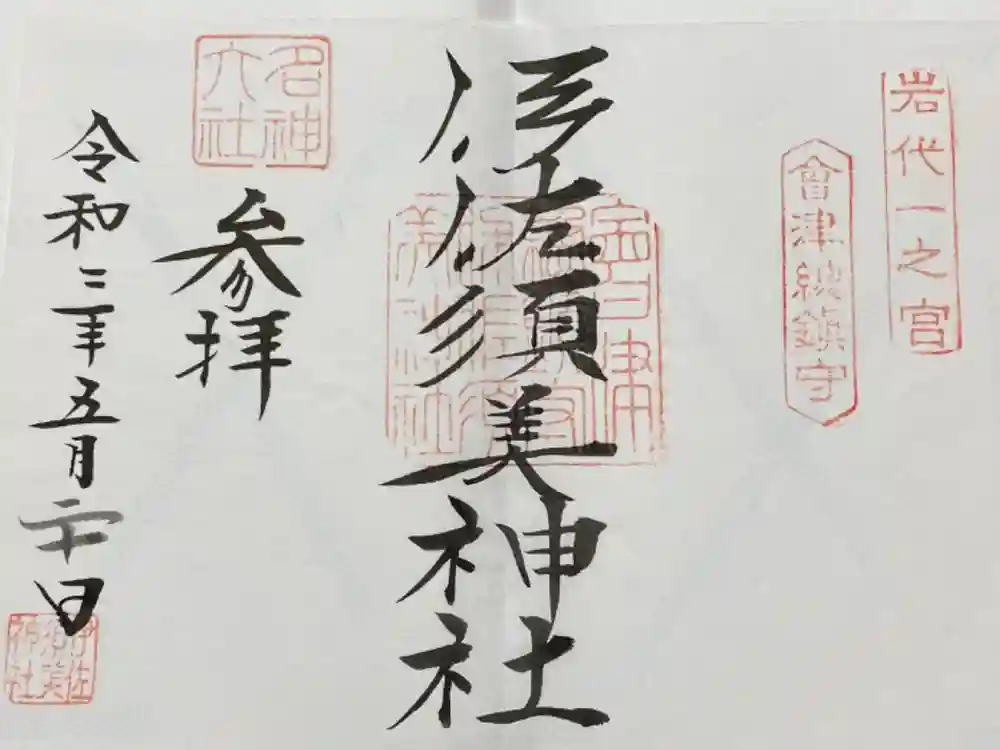 岩代一之宮
會津総鎮守
伊佐須美神社
名神
大社
参拝
令和三年五月二十日
伊佐
須美
神社